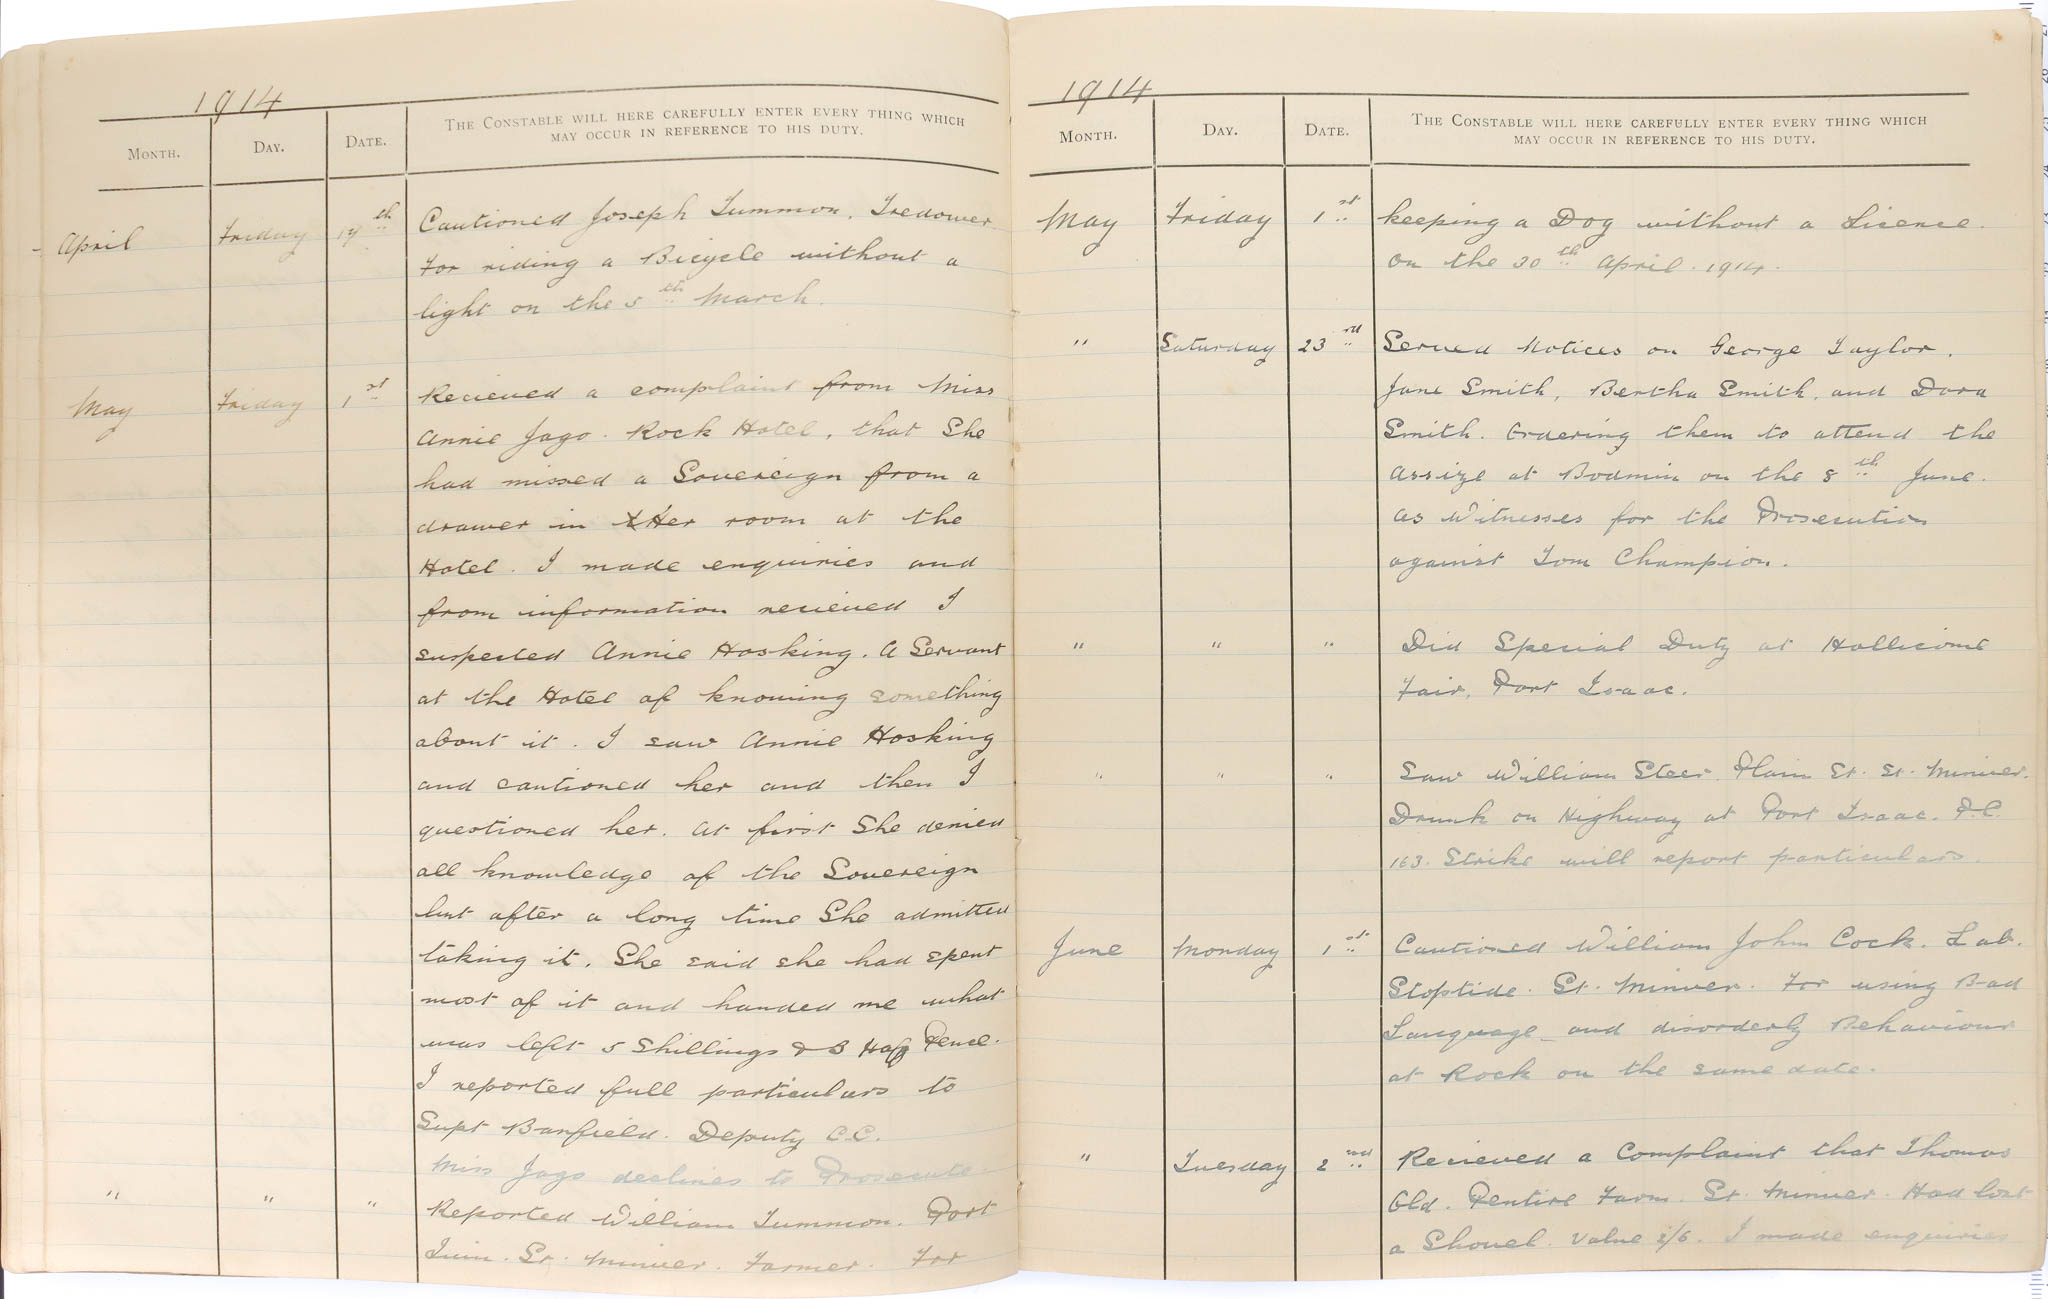 1914
MONTH. DAY. DATE. THE CONSTABLE WILL HERE CAREFULLY ENTER EVERY THING WHICH
MAY OCCUR IN REFERENCE TO HIS DUTY.
April Friday 17th Cautioned Joseph Tummon. Tredower
For riding a Bicycle without a
light on the 5th March.
May Friday 1st Recieved a complaint from Miss
Annie Jago. Rock Hotel, that She
had missed a Sovereign from a
drawer in Her room at the
Hotel. I made enquiries and
from information recieved I
suspected Annie Hosking. A Servant
at the Hotel of knowing something
about it. I saw Annie Hosking
and cautioned her and then I
questioned her. At first She denied
all knowledge of the Sovereign
but after a long time She admitted
taking it. She said she had spent
most of it and handed me what
was left 5 Shillings & 3 Half Pence.
I reported full particulars to
Supt Banfield. Deputy C.C.
Miss Jago declines to Prosecute.
" " " Reported William Tummon. Port
St. Minver. Farmer. For
1914
MONTH. DAY. DATE. THE CONSTABLE WILL HERE CAREFULLY ENTER EVERY THING WHICH
MAY OCCUR IN REFERENCE TO HIS DUTY.
May Friday 1st keeping a Dog without a Licence.
on the 30th April. 1914.
" Saturday 23rd Served Notices on George Taylor.
Jane Smith, Bertha Smith, and Dora
Smith. Ordering them to attend the
Assize at Bodmin on the 8th June.
as Witnesses for the Prosecution
against Tom Champion.
" " " Did Special Duty at Hollicome
Fair, Port Isaac.
" " " Saw William Steer. Plain St. St. Minver.
Drunk on Highway at Port Isaac. P.C.
163. Strike will report particulars.
June Monday 1st Cautioned William John Cock. Lab.
Stoptide. St. Minver. For using Bad
Language and disorderly Behaviour
at Rock on the same date.
" Tuesday 2nd Recieved a Complaint that Thomas
Old. Pentire Farm. St. Minver. Had lost
a Shovel. Value 2/6. I made enquiries